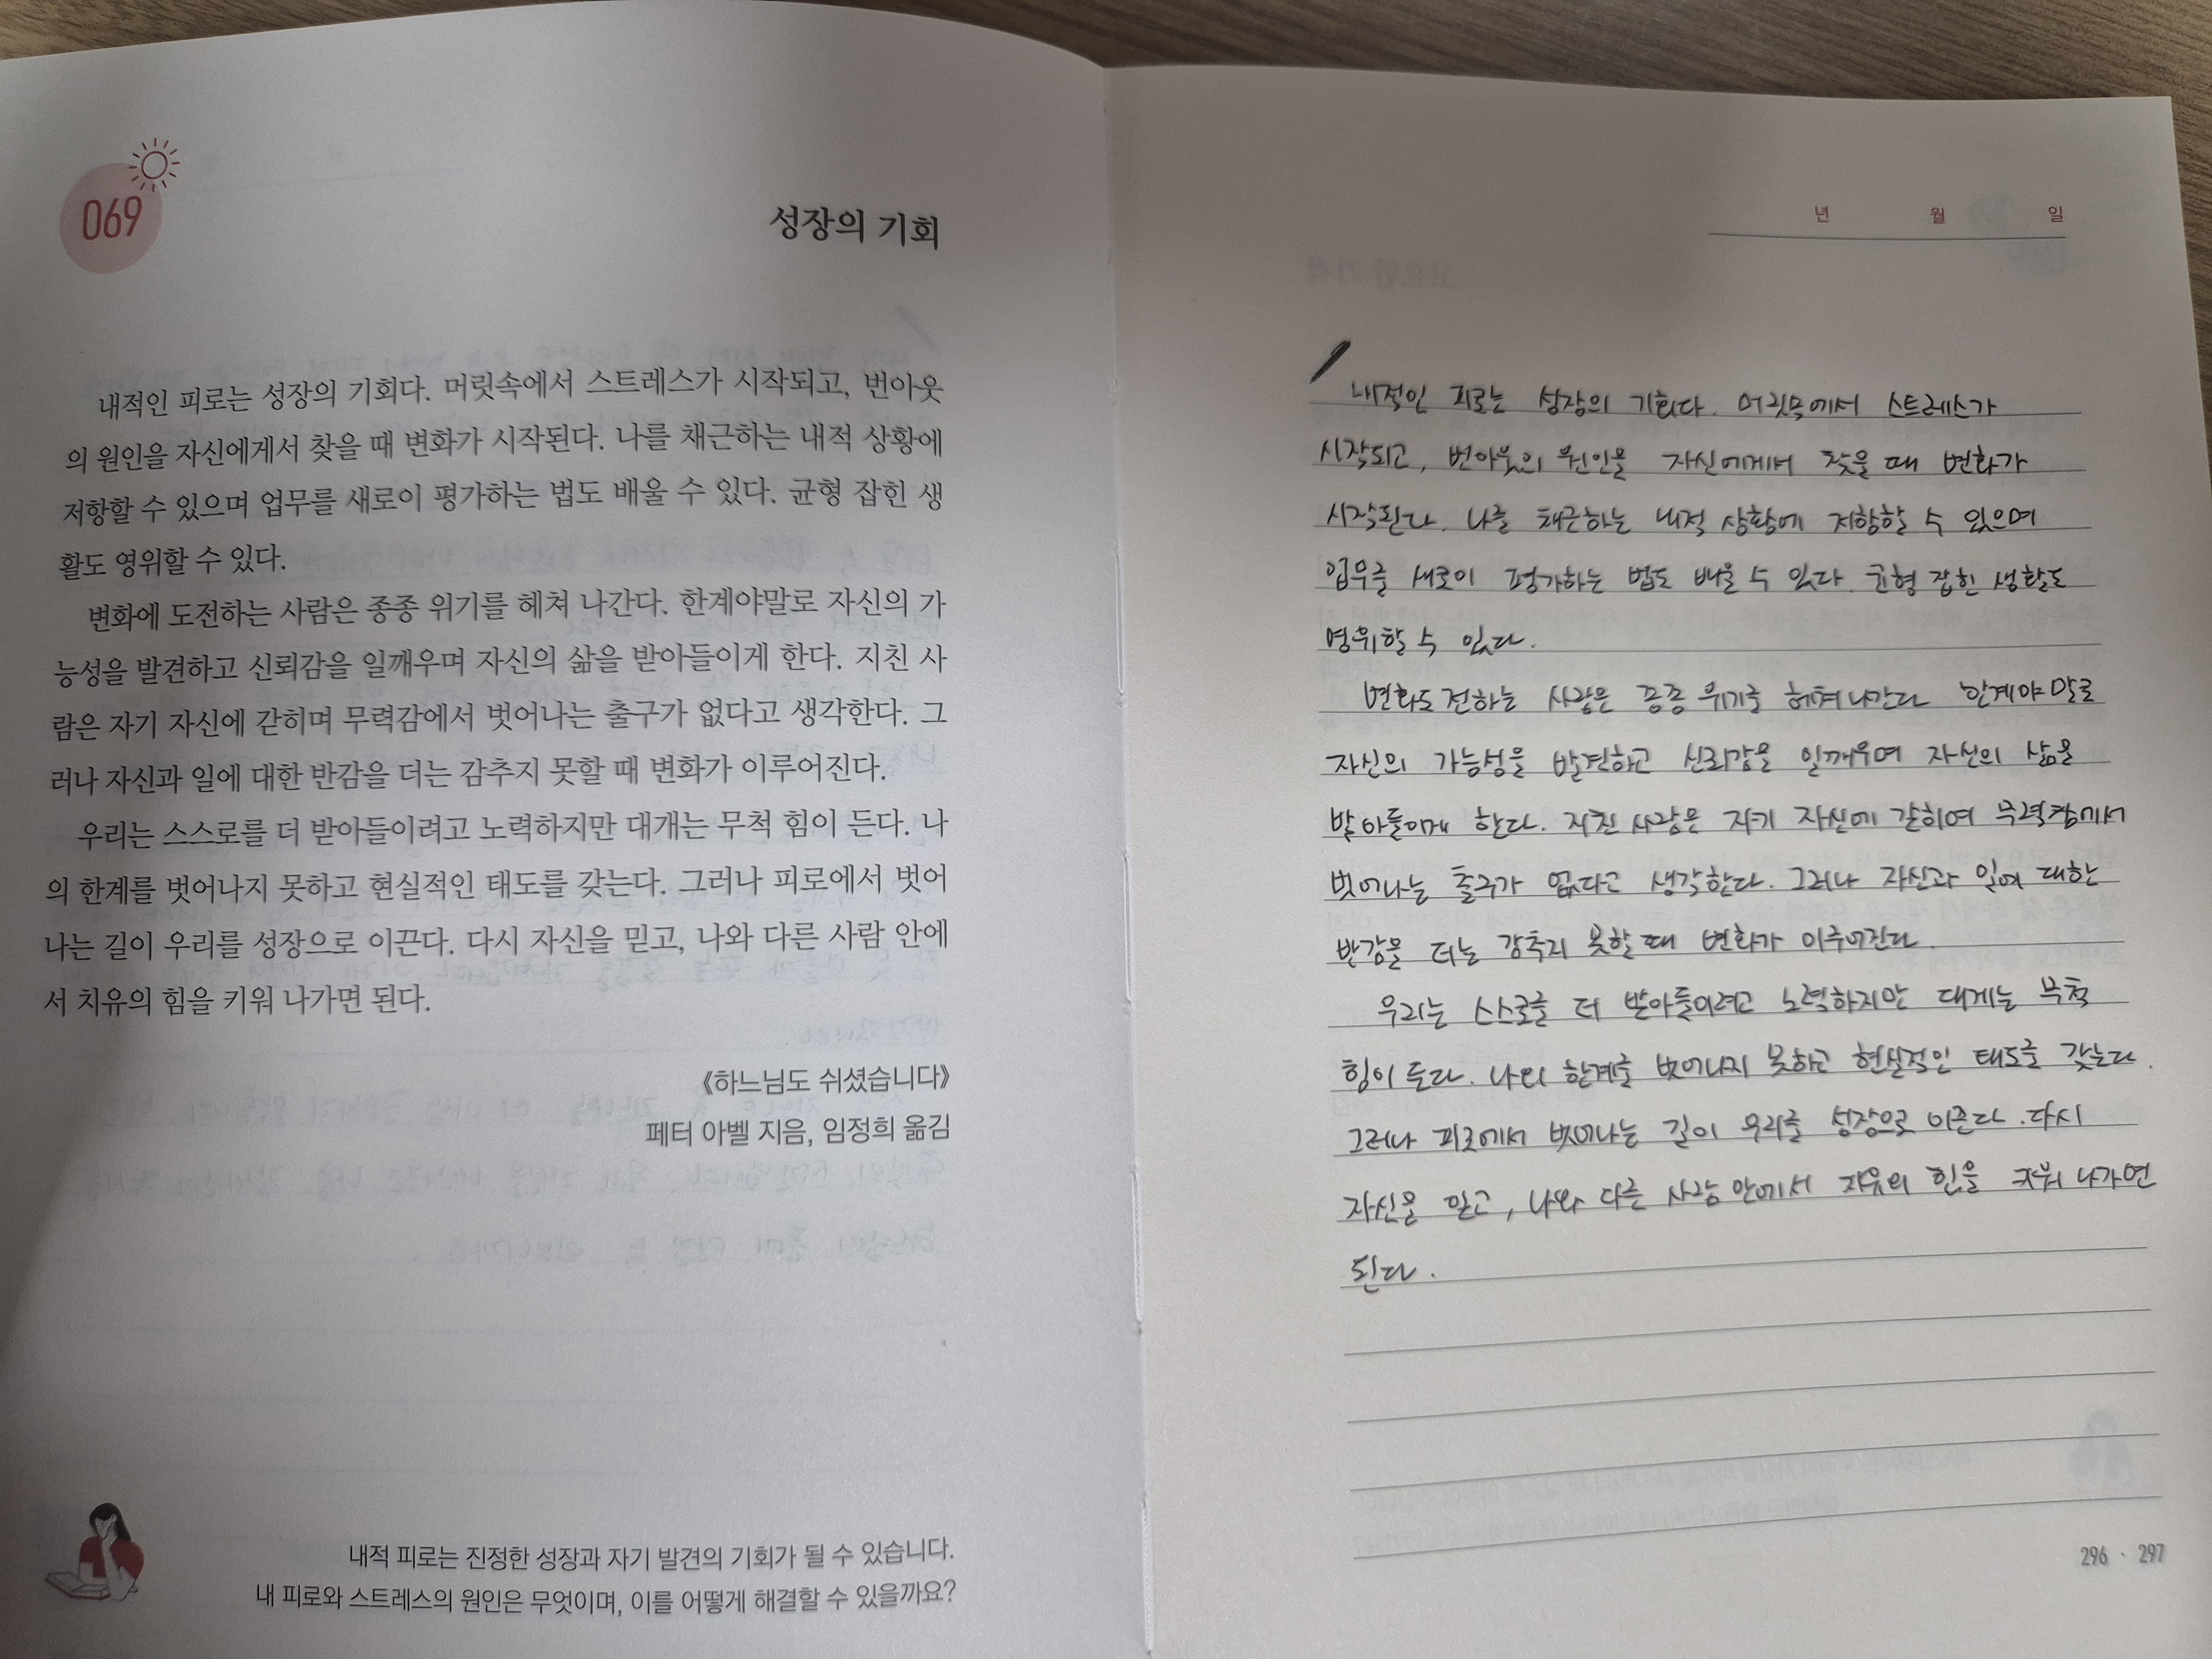 069
성장의 기회
내적인 피로는 성장의 기회다. 머릿속에서 스트레스가 시작되고, 번아웃
의 원인을 자신에게서 찾을 때 변화가 시작된다. 나를 채근하는 내적 상황에
저항할 수 있으며 업무를 새로이 평가하는 법도 배울 수 있다. 균형 잡힌 생
활도 영위할 수 있다.
변화에 도전하는 사람은 종종 위기를 헤쳐 나간다. 한계야말로 자신의 가
능성을 발견하고 신뢰감을 일깨우며 자신의 삶을 받아들이게 한다. 지친 사
람은 자기 자신에 갇히며 무력감에서 벗어나는 출구가 없다고 생각한다. 그
러나 자신과 일에 대한 반감을 더는 감추지 못할 때 변화가 이루어진다.
우리는 스스로를 더 받아들이려고 노력하지만 대개는 무척 힘이 든다. 나
의 한계를 벗어나지 못하고 현실적인 태도를 갖는다. 그러나 피로에서 벗어
나는 길이 우리를 성장으로 이끈다. 다시 자신을 믿고, 나와 다른 사람 안에
서 치유의 힘을 키워 나가면 된다.
《하느님도 쉬셨습니다》
페터 아벨 지음, 임정희 옮김
내적 피로는 진정한 성장과 자기 발견의 기회가 될 수 있습니다.
내 피로와 스트레스의 원인은 무엇이며, 이를 어떻게 해결할 수 있을까요?
년 월 일
내적인 피로는 성장의 기회다. 머릿속에서 스트레스가
시작되고, 번아웃의 원인을 자신에게서 찾을 때 변화가
시작된다. 나를 채근하는 내적 상황에 저항할 수 있으며
업무를 새로이 평가하는 법도 배울 수 있다. 균형 잡힌 생활도
영위할 수 있다.
변화도전하는 사람은 종종 위기를 헤쳐나간다 한계야말로
자신의 가능성을 발견하고 신뢰감을 일깨우며 자신의 삶을
받아들이게 한다. 지친 사람은 자기 자신에 갇히며 무력감에서
벗어나는 출구가 없다고 생각한다. 그러나 자신과 일에 대한
반감을 더는 감추지 못할 때 변화가 이루어진다.
우리는 스스로를 더 받아들이려고 노력하지만 대게는 무척
힘이 든다. 나의 한계를 벗어나지 못하고 현실적인 태도를 갖는다.
그러나 피로에서 벗어나는 길이 우리를 성장으로 이끈다. 다시
자신을 믿고, 나와 다른 사람 안에서 치유의 힘을 키워 나가면
된다.
296 · 297